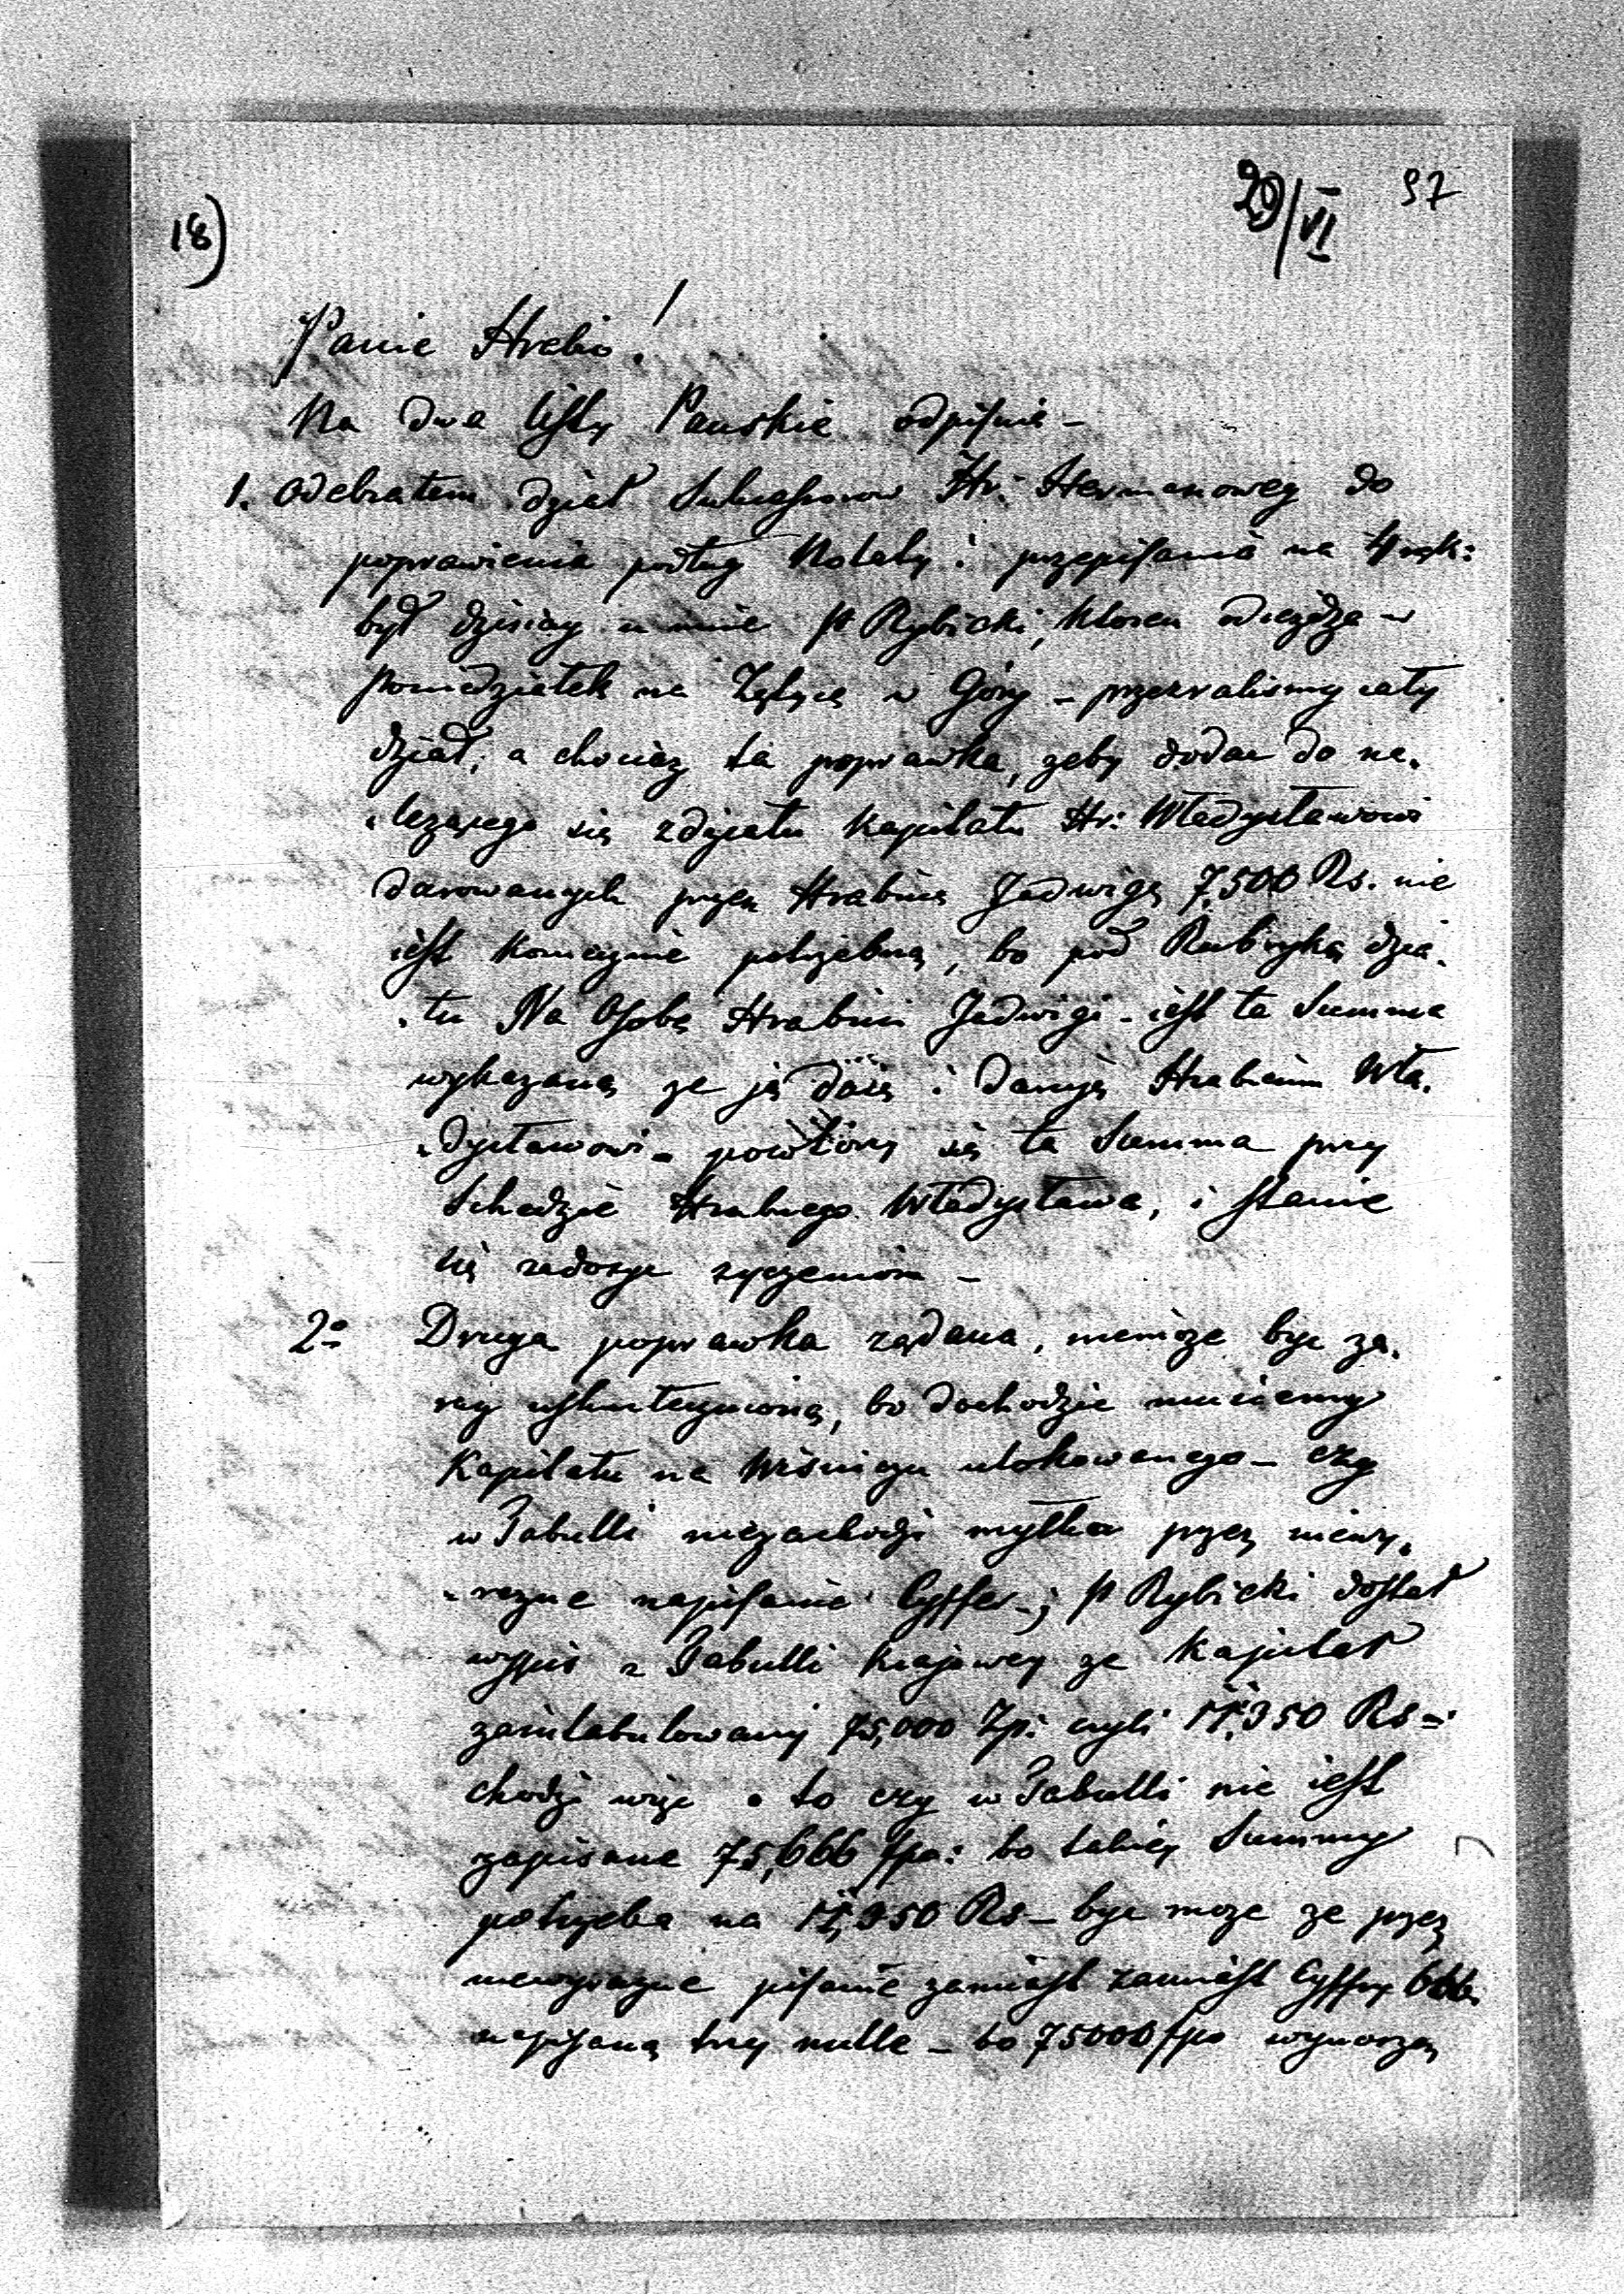 18)
29/VI 97
Panie Hrabio!
Na dwa listy Pańskie odpisuie –
1. Odebrałem dział Sukcessorow Hr: Hermanowey do
poprawienia podług Notaty i przepisania na
był dzisiay u mnie P Rybicki, ktoren odiezdza w
poniedziałek na Zętycę w Gory – przerwalismy cały
dział, a chociaz ta poprawka, zeby dodac do na„
„lezącego się z działu kapitału Hr: Władysławowi
darowanych przez Hrabinę Jadwigę 7,500 Rs. nie
iest koniecznie potrzebną, bo pod Rubryką dzia„
„łu Na Osobę Hrabini Jadwigi – iest ta Summa
wykazaną ze ją daie i daruje Hrabiemu Wła„
„dysławowi – powtorzy się ta Summa przy
Schedzie Hrabiego Władysława, i stanie
się zadosyc zyczeniom –
2o Druga poprawka ządana, niemoze byc za„
raz uskutecznioną, bo dochodzic musiemy
Kapitału na Wiśniczu ulokowanego – czy
w Tabulli niezachodzi myłka przez niewy„
„razne napisanie Cyffer –; P Rybicki dostał
wypis z Tabulli krajowey ze kapitał
zaintabulowany 75,000 Zp: czyli 11,350 Rs –
chodzi więc o to czy w Tabulli nie iest
zapisane 75,666 fpo: bo takiey Summy
potrzeba na 11,350 Rs – byc moze ze przez
niewyrazne pisanie zamiast zamiast Cyffry 666
napisaną trzy nulle – bo 75000 fpo wynoszą